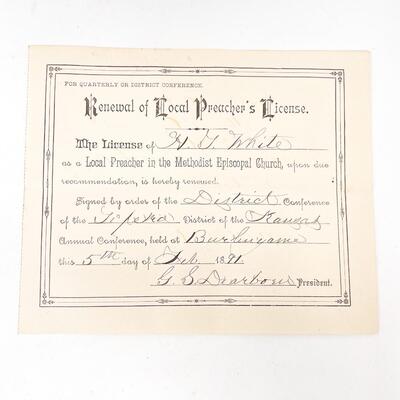 FOR QUARTERLY OR DISTRICT CONFERENCE.
Renewal of Local Preacher's License.
The License of H. T. White
as a Local Preacher in the Methodist Episcopal Church, upon due
recommendation, is hereby renewed.
Signed by order of the District Conference
of the Topeka District of the Kansas
Annual Conference, held at Burlingame
this 5th day of Feb. 1891.
G. S. Dearborn President.